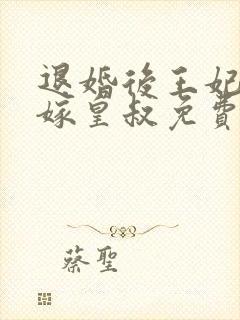 退婚後王妃
嫁皇叔免費
蔡聖